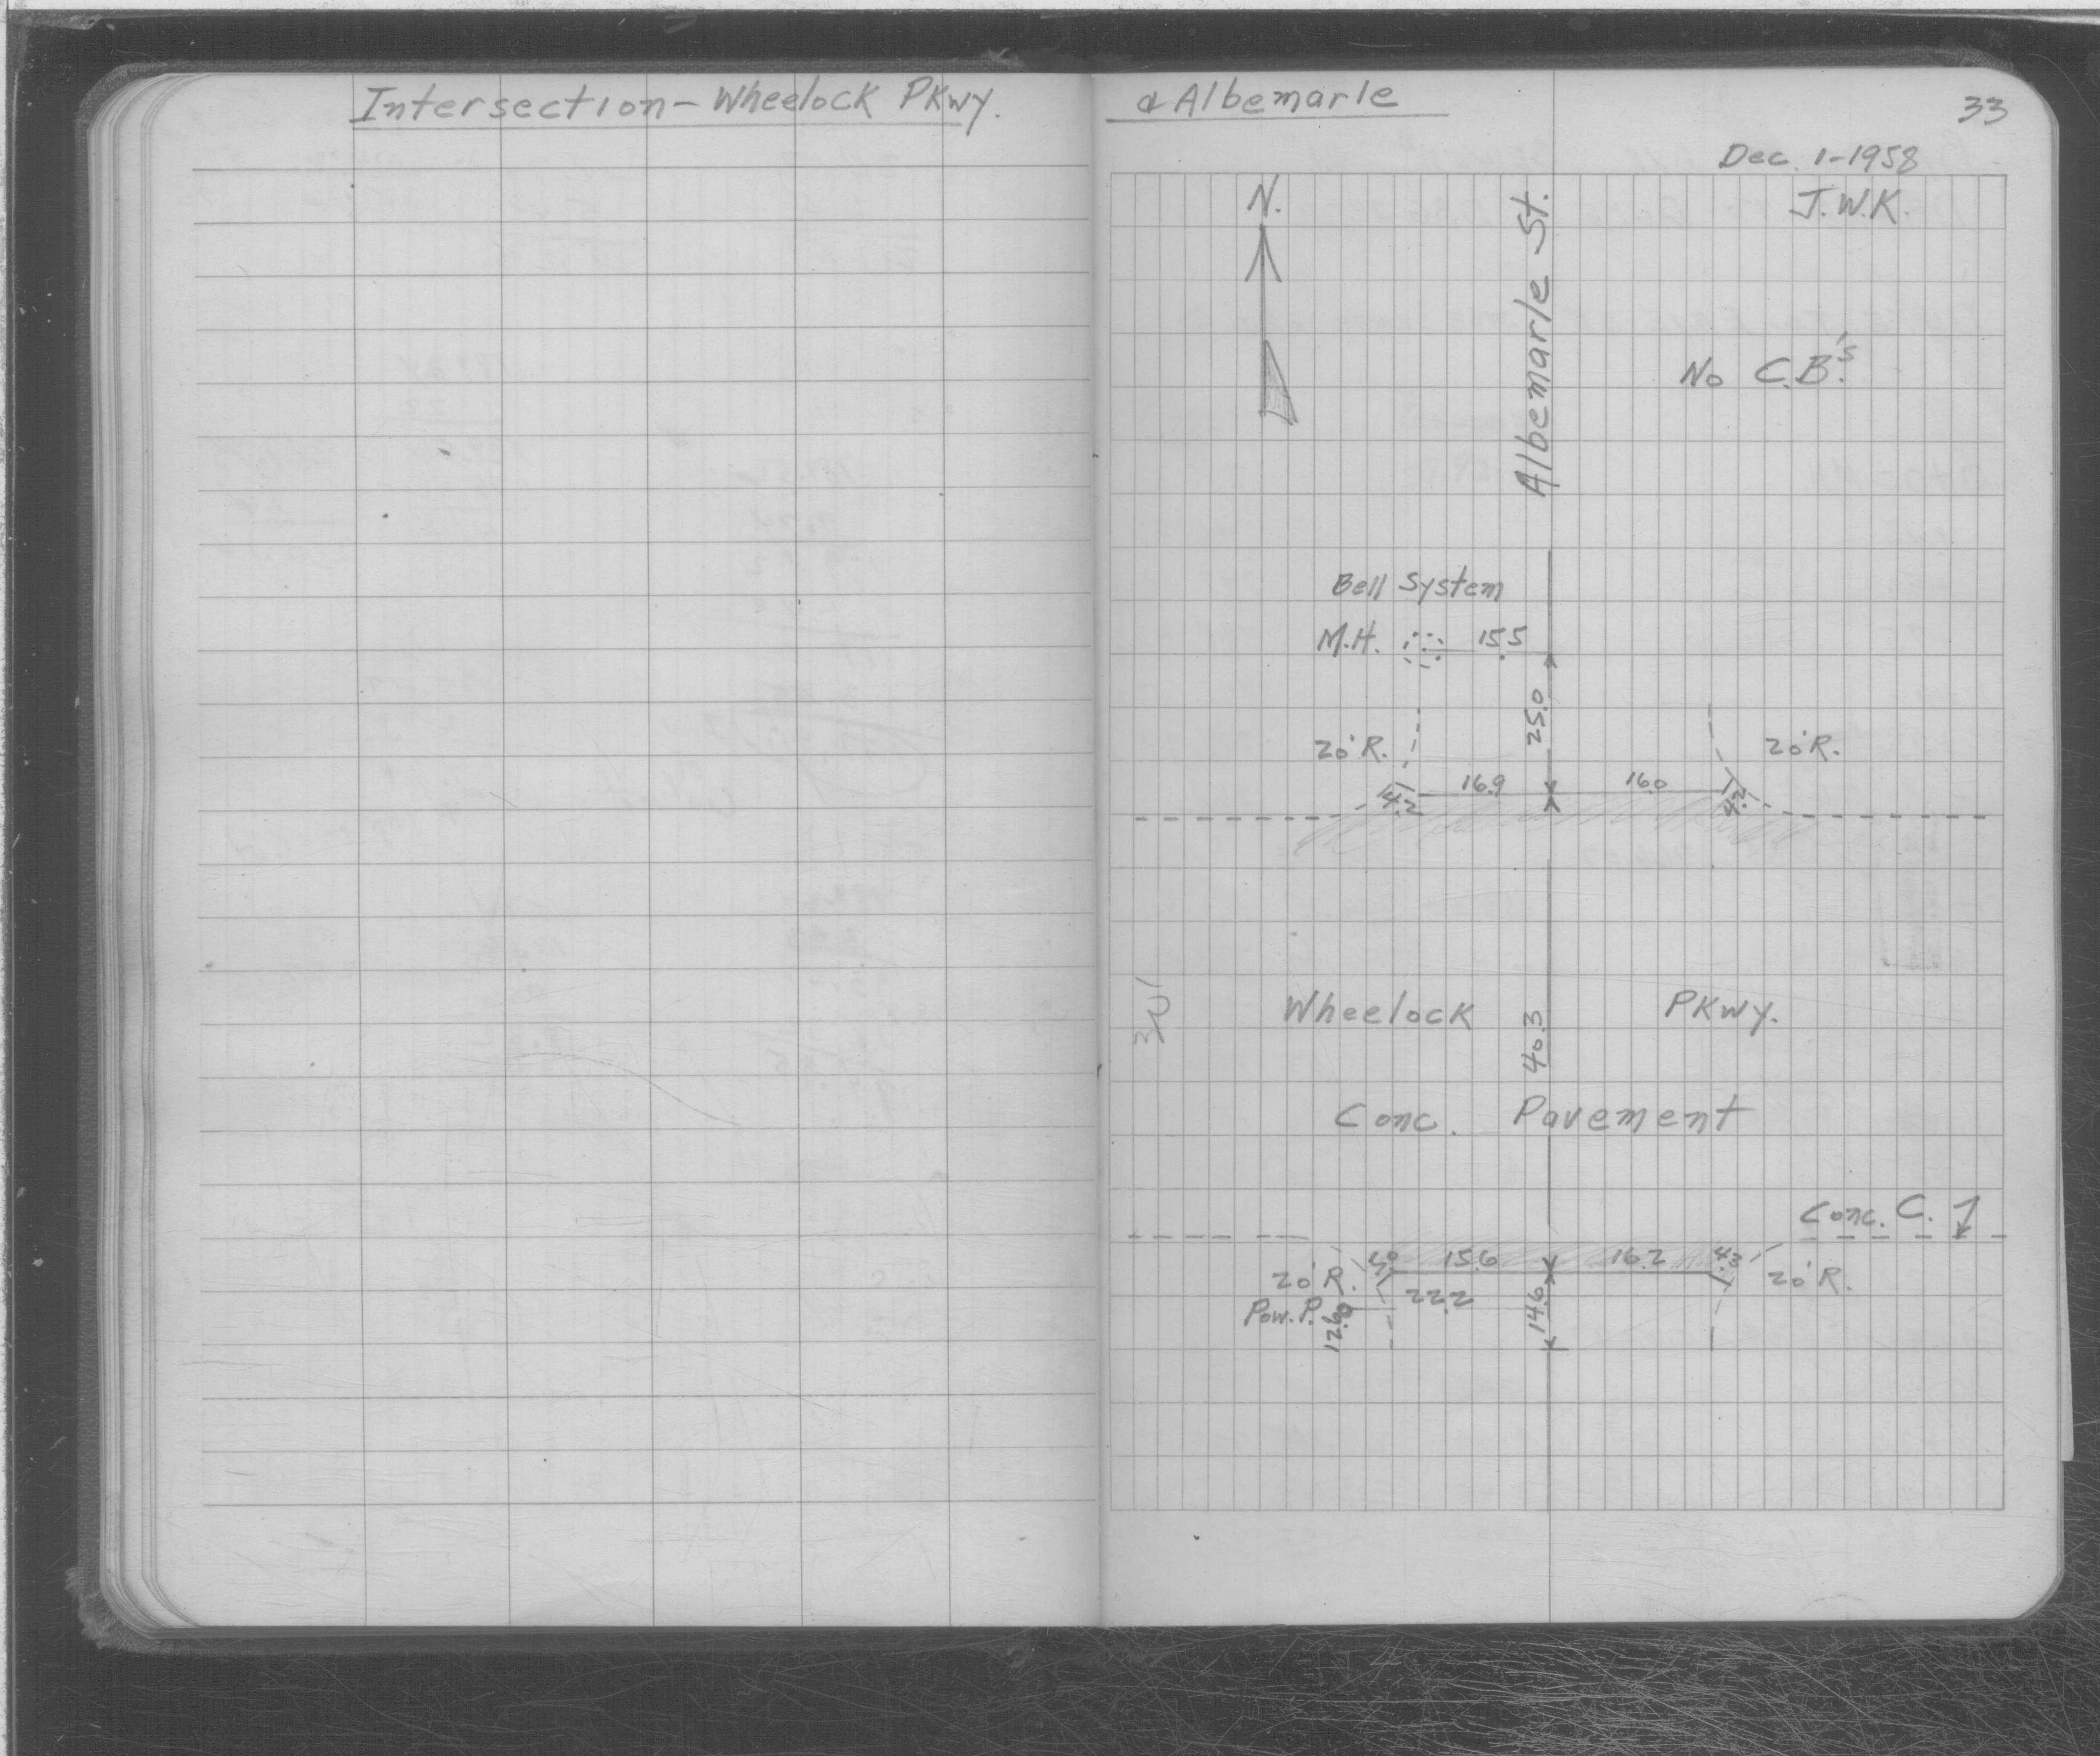 Intersection - Wheelock PKwy. & Albemarle
33
Dec. 1-1958
N.
J.W.K.
Albemarle St.
No C.B.'s
Bell System
M.H. 15.5
25.0
20' R. 20' R.
16.9 16.0
4.2 4.2
Wheelock PKwy.
40.3
Conc. Pavement
Conc. C.
15.6 16.2 4.3
20' R. 20' R.
22.2
Pow. P.
12.6 14.6